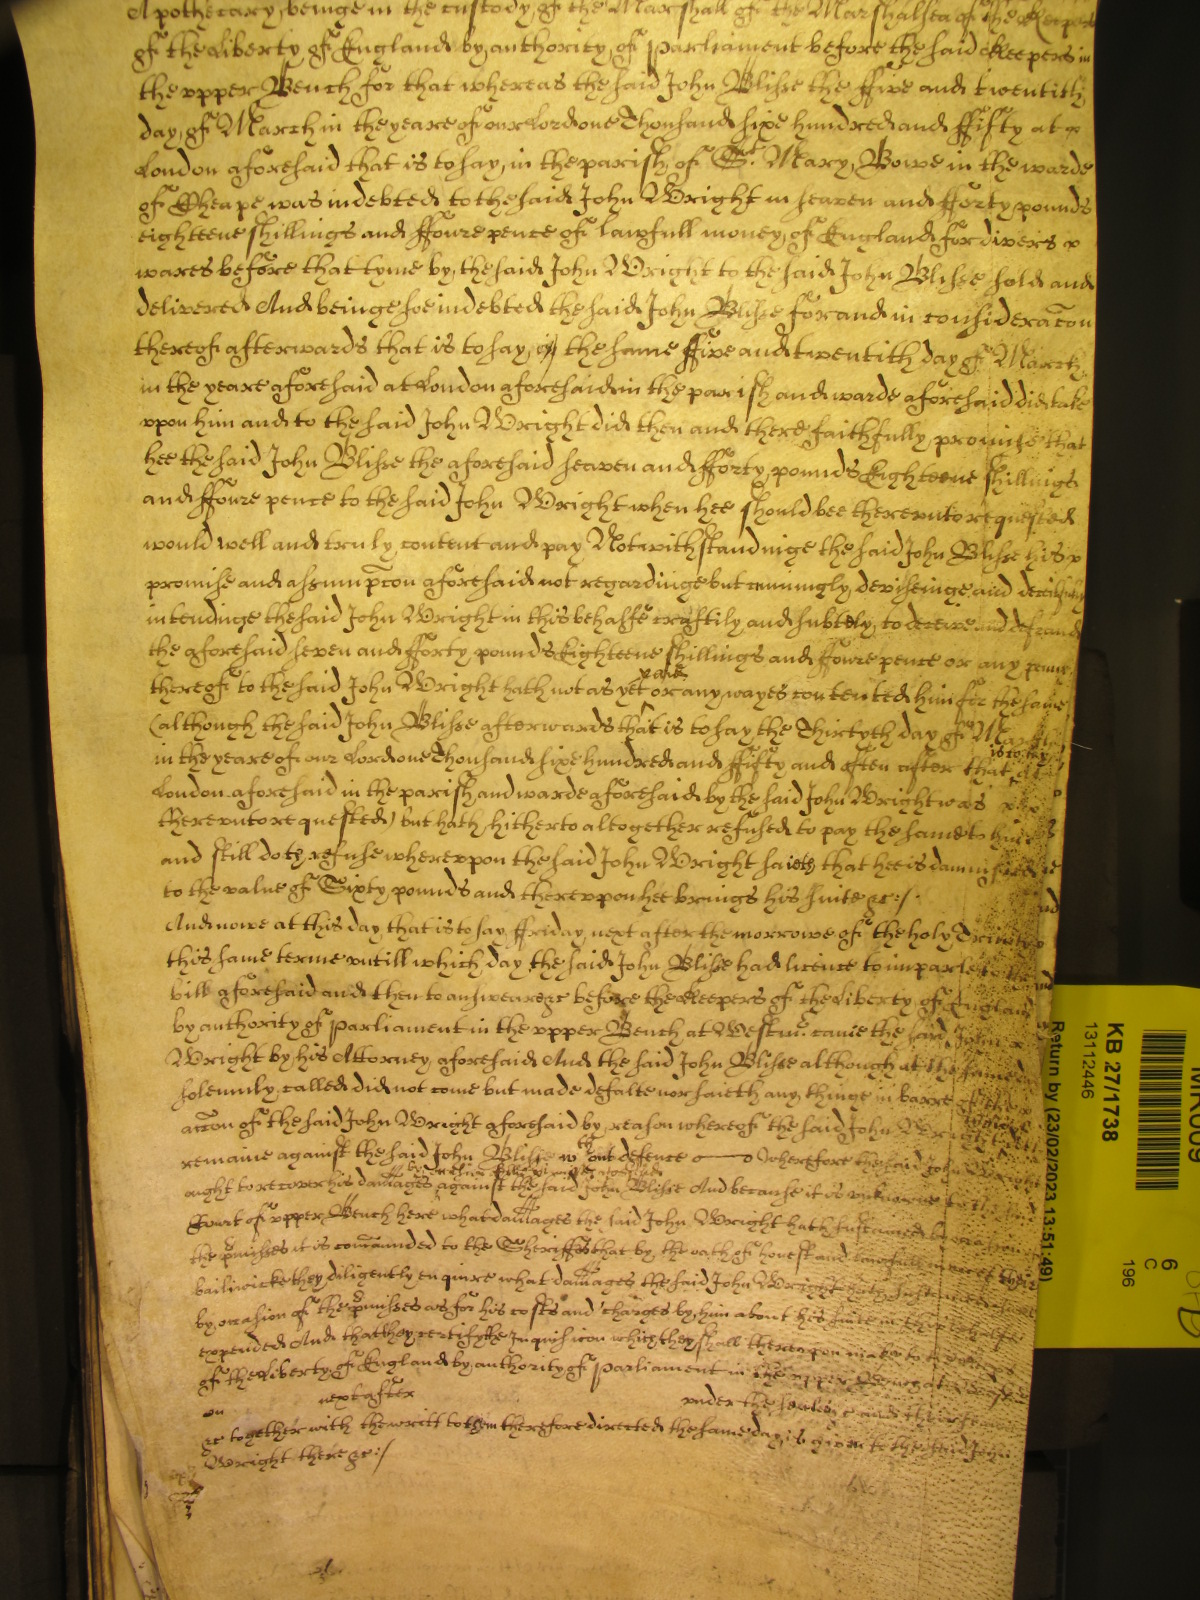 Apothecary, beinge in the custody of the Marshall of the Marshalsea of the Keepers
of the Liberty of England by authority of Parliament before the said Keepers in
the vpper Bench for that whereas the said John Blisse the ffive and twentith
day of March in the yeare of our Lord one Thousand sixe hundred and ffifty at
London aforesaid that is to say, in the parish of St Mary Bowe in the warde
of Cheape was indebted to the said John Wright in seaven and fforty pounds
eighteene shillings and ffoure pence of lawfull money of England for divers
wares before that tyme by the said John Wright to the said John Blisse sold and
delivered And beinge soe indebted the said John Blisse for and in consideracon
thereof afterwards that is to say, the same ffive and twentith day of March
in the yeare aforesaid at London aforesaid in the parish and warde aforesaid did take
vpon him and to the said John Wright did then and there faithfully promise that
hee the said John Blisse the aforesaid seaven and fforty pounds Eighteene shillings
and ffoure pence to the said John Wright when hee should bee therevnto requested
would well and truly content and pay Notwithstandinge the said John Blisse his
promise and assumpcon aforesaid not regardinge but cunningly deviseinge and deceiptfully
intendinge the said John Wright in this behalfe craftily and subtely to deceive and defraud
the aforesaid seven and fforty pounds Eighteene shillings and ffoure pence or any penny
thereof to the said John Wright hath not as yet paid or any wayes contented him for the same
(although the said John Blisse afterwards that is to say the Thirtyth day of March
in the yeare of our Lord one Thousand sixe hundred and ffifty and often after that is to say at
London aforesaid in the parish and warde aforesaid by the said John Wright was
therevnto requested) but hath hitherto altogether refused to pay the same to him
and still doth refuse wherevpon the said John Wright saieth that hee is damnified
to the value of Sixty pounds and therevpon hee brings his suite &c:/.
And nowe at this day, that is to say ffriday next after the morrowe of the holy Trinity
this same terme vntill which day the said John Blisse had licence to imparle to the
bill aforesaid and then to answeare &c before the Keepers of the Liberty of England
by authority of Parliament in the vpper Bench at Westmr. came the said John
Wright by his Attorney aforesaid And the said John Blisse although at the same day
solemnly called did not come but made defalte nor saieth any thinge in barre of the
accon of the said John Wright aforesaid by reason whereof the said John Wright
remaine against the said John Blisse wthout defence Wherefore the said John Wright
ought to recover his damages against the said John Blisse And because it is vnknowne to the
Court of vpper Bench here what damages the said John Wright hath sustained by occasion of
the pmisses it is comaunded to the Sheriffes that by the oath of honest and lawfull men of their
bailiwicke they diligently enquire what damages the said John Wright hath sustained
by occasion of the pmisses as for his costs and charges by him about his suite in this behalfe
expended And that they certify the Inquisicon which they shall therevpon make to the
of the Liberty of England by authority of Parliament in the vpper Bench at Westmr
on next after vnder the seales &c and their seales
&c together with the writt to them therefore directed the same day is given to the said John
Wright there &c:/
KB 27/1738
13112446
Return by (23/02/2023 13:51:49)
6
C
196